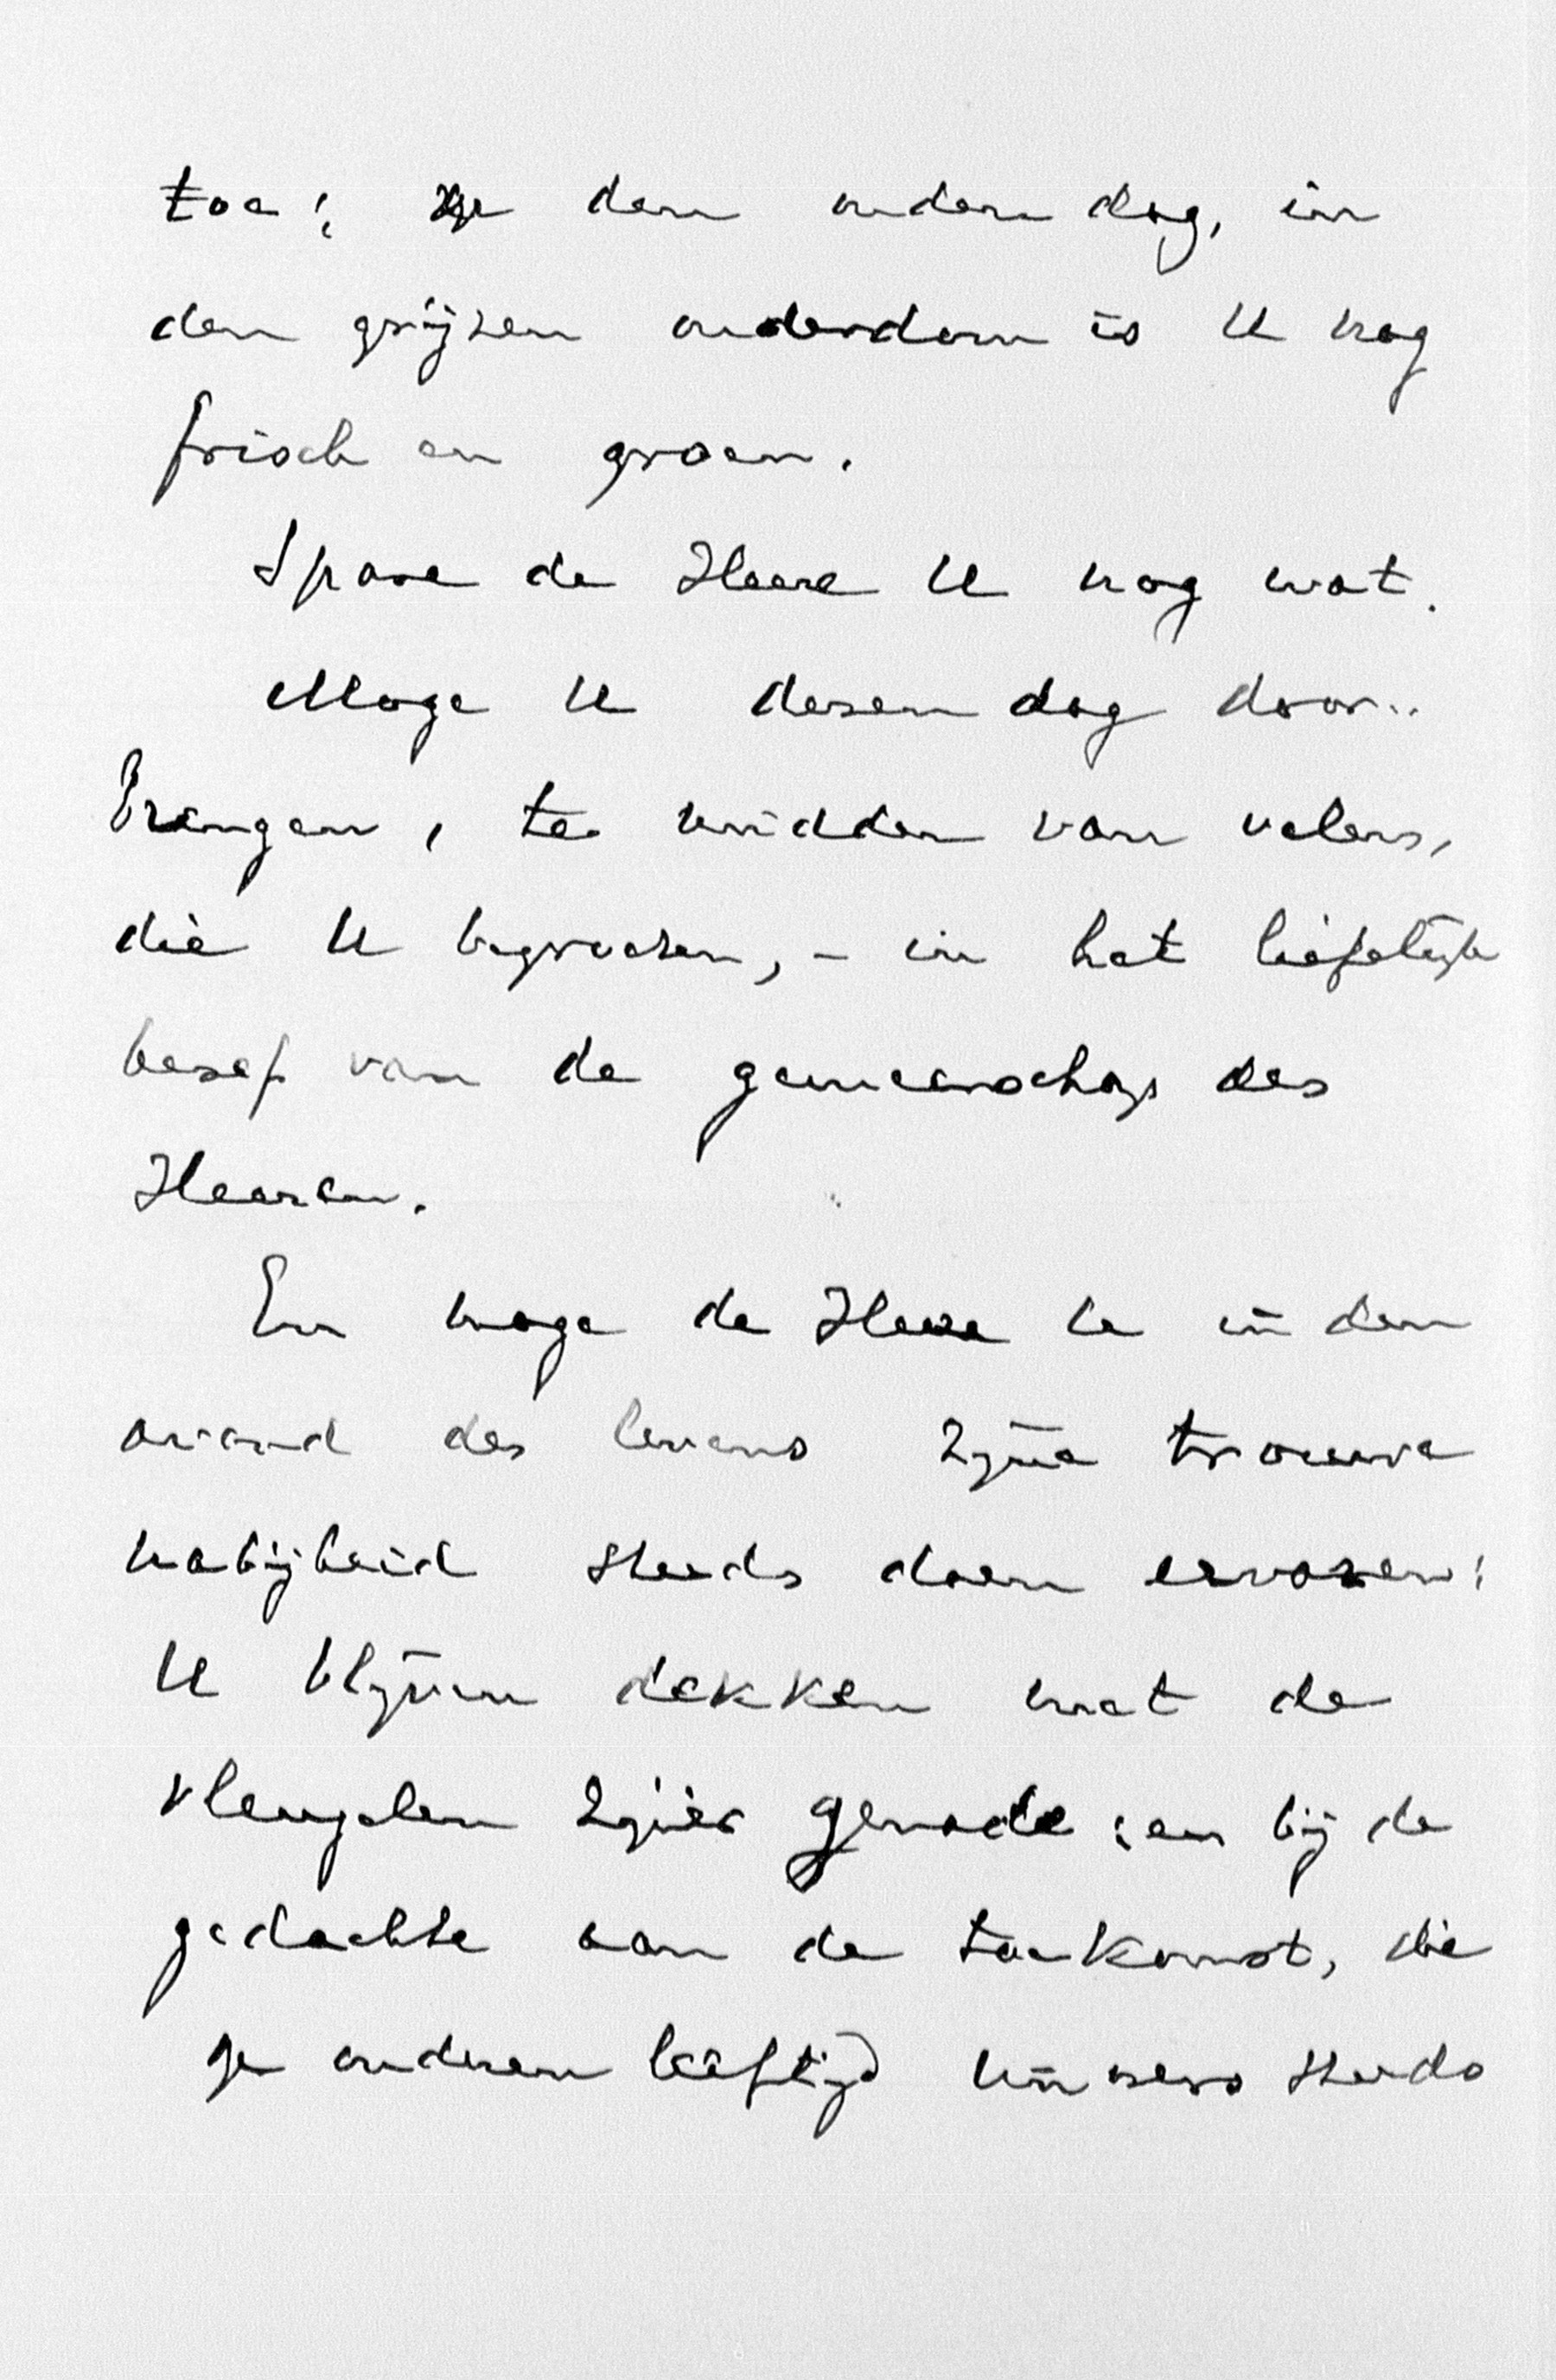 toe; op den ouden dag, in
den grijzen ouderdom is U nog
frisch en groen.
Spare de Heere U nog wat.
Moge U dezen dag door-
brengen, te midden van velen,
die U begroeten, - in het liefelijk
besef van de gemeenschap des
Heeren.
En moge de Heere U in den
avond des levens Zijne trouwe
nabijheid steeds doen ervaren;
U blijven dekken met de
vleugelen Zijner genade; en bij de
gedachte aan de toekomst, die
op ouderen leeftijd steeds